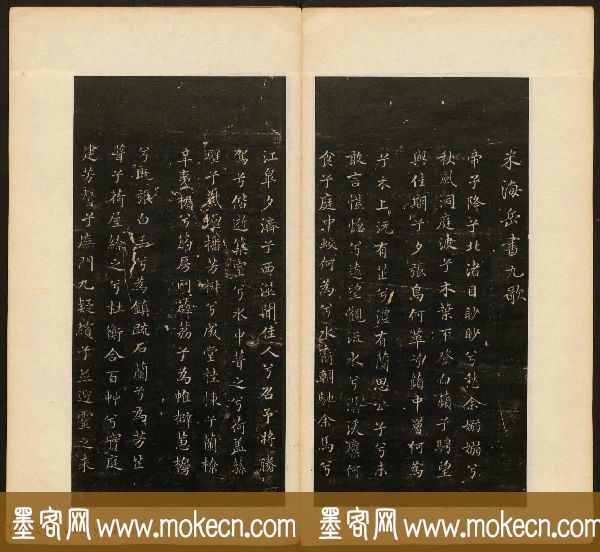 米海岳書九歌
帝子降兮北渚目眇眇兮愁余嫋嫋兮
秋風洞庭波兮木葉下登白蘋兮騁望
與佳期兮夕張鳥何萃兮蘋中罾何為
兮木上沅有芷兮澧有蘭思公子兮未
敢言慌惚兮遠望觀流水兮潺湲麋何
食兮庭中蛟何為兮水裔朝馳余馬兮
江皋夕濟兮西澨聞佳人兮召予將騰
駕兮偕逝築室兮水中葺之兮荷蓋蓀
壁兮紫壇播芳椒兮成堂桂棟兮蘭橑
辛夷楣兮葯房罔薜荔兮為帷擗蕙櫋
兮既張白玉兮為鎮疏石蘭兮為芳芷
葺兮荷屋繚之兮杜衡合百草兮實庭
建芳馨兮廡門九疑繽兮並迎靈之來
墨客网 www.mokecn.com 墨客网 www.mokecn.com